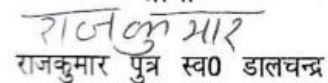 राजकुमार
राजकुमार पुत्र स्व0 डालचन्द